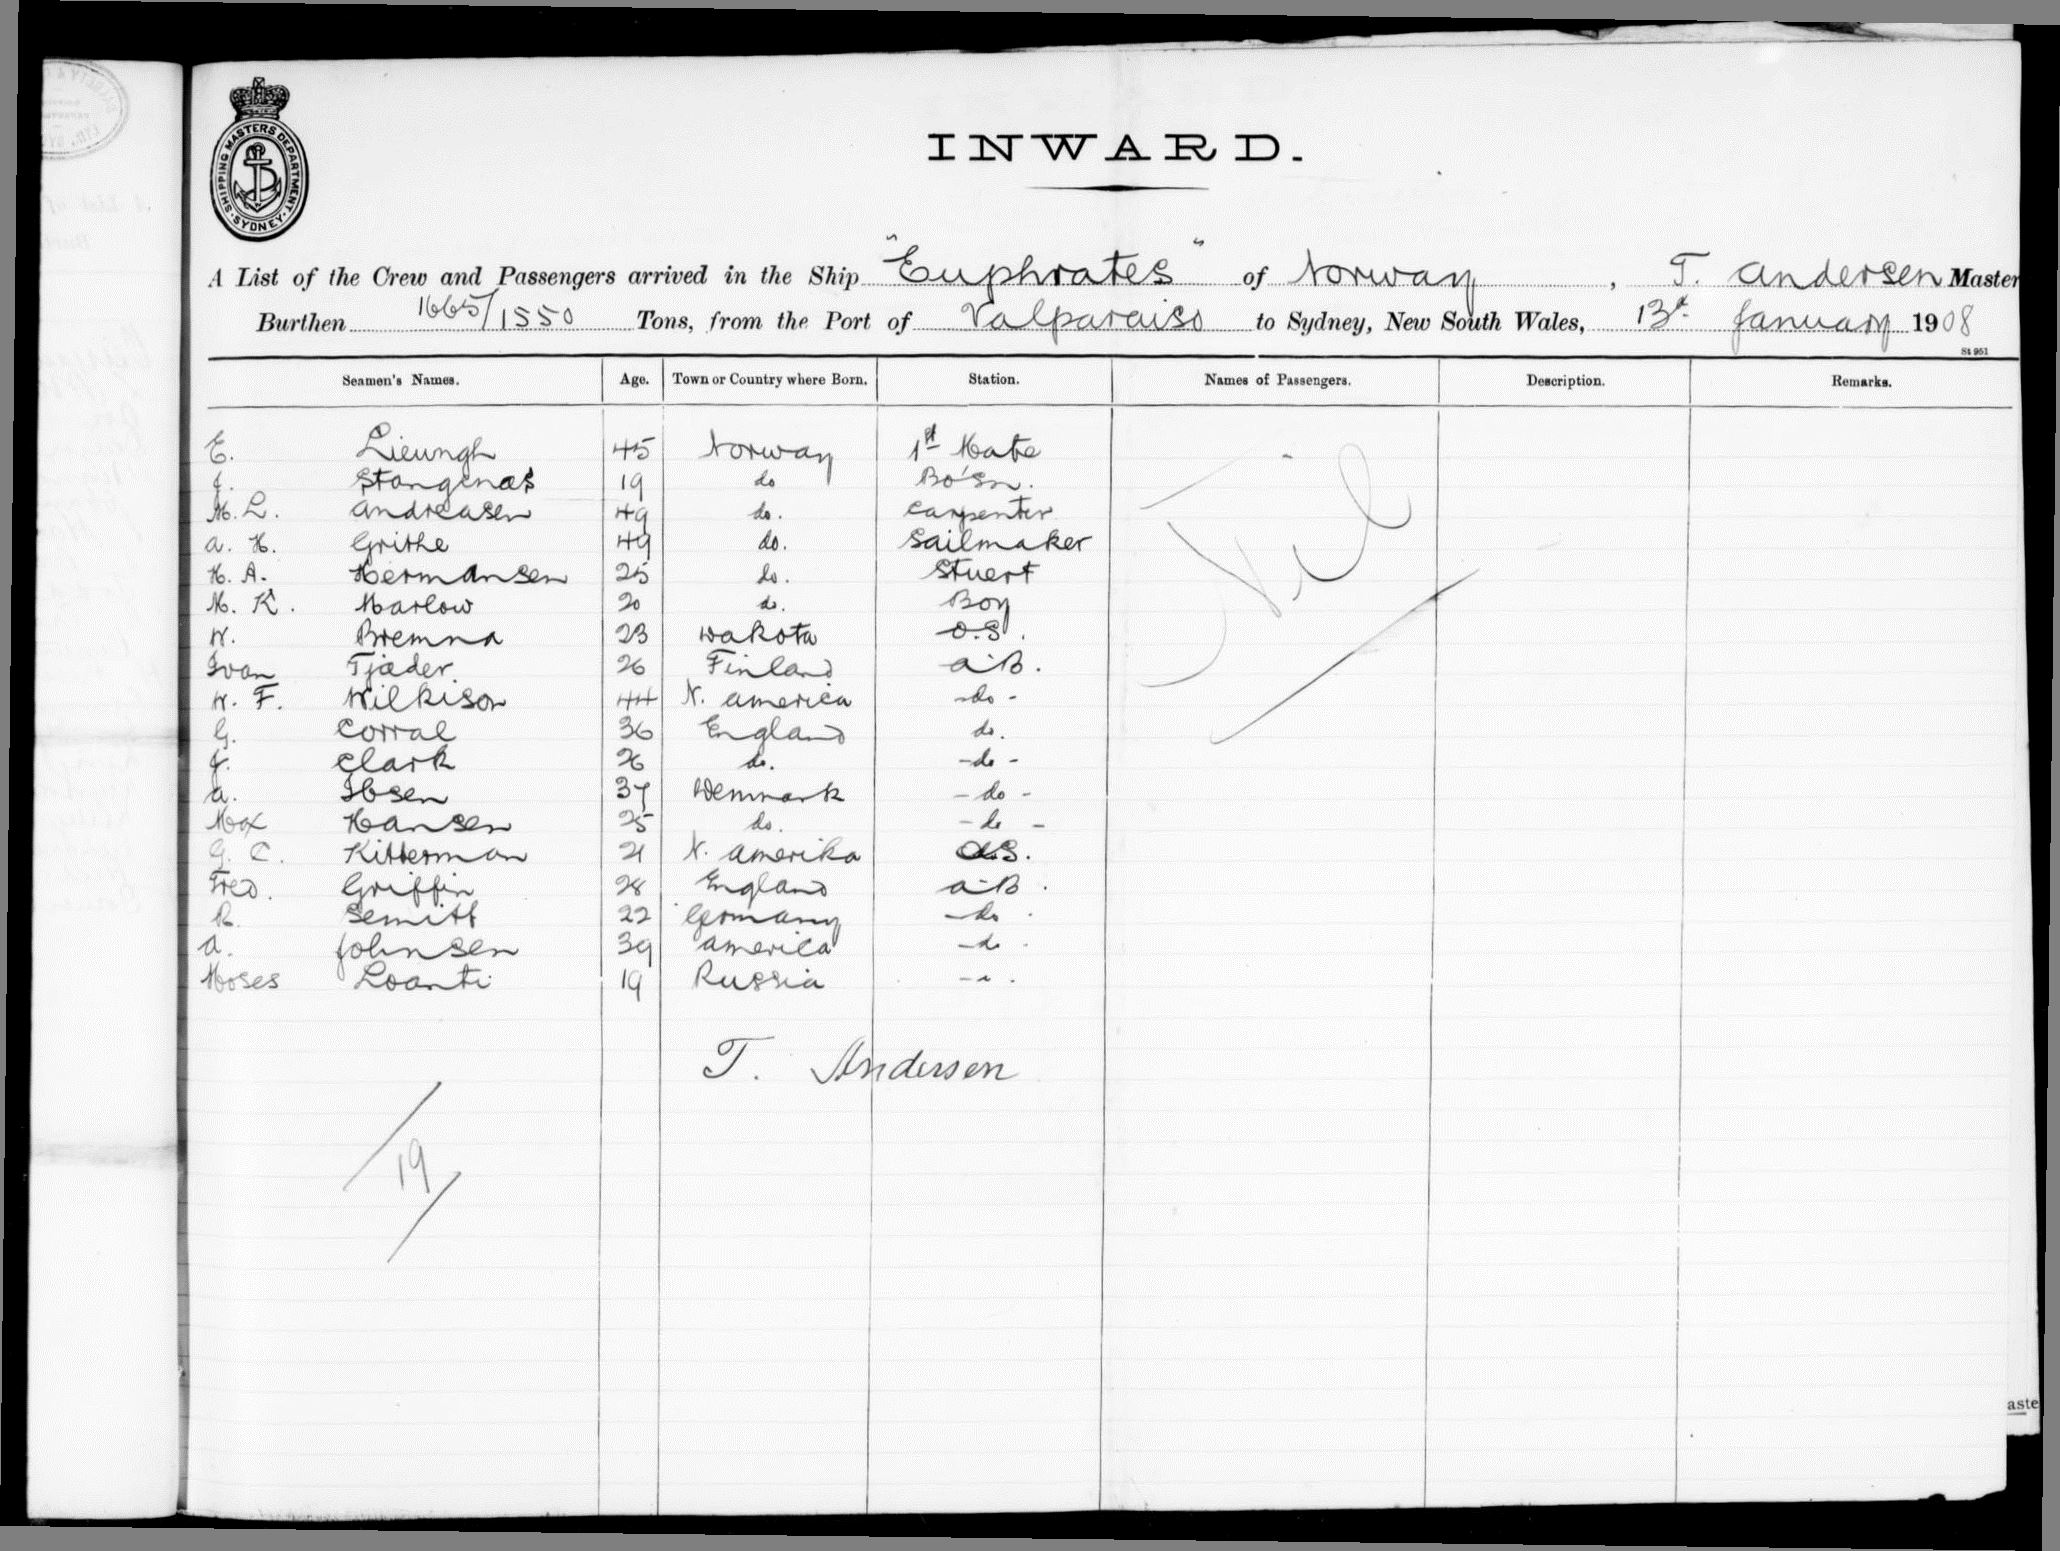 SHIPPING MASTERS DEPARTMENT. SYDNEY.
INWARD.
A List of the Crew and Passengers arrived in the Ship "Euphrates" of Norway, T. Andersen Master
Burthen 1665/1550 Tons, from the Port of Valparaiso to Sydney, New South Wales, 13th January 1908
St 951
Seamen's Names. Age. Town or Country where Born. Station. Names of Passengers. Description. Remarks.
E. Lieungh 45 Norway 1st Mate
J. Stangenæs 19 do Bo'sn.
M. L. Andreasen 49 do. Carpenter
A. H. Grithe 49 do. Sailmaker
H. A. Hermansen 25 do. Stuert
M. K. Marlow 20 do. Boy
W. Bremna 23 Dakota O.S.
Ivan Tjæder. 26 Finland A.B.
W. F. Wilkison 44 N. America -do-
G. Corral 36 England do.
J. Clark 26 do. -do-
A. Ibsen 37 Denmark -do-
Max Hansen 25 do. -do-
G. C. Kitterman 21 N. Amerika O.S.
Fred. Griffin 28 England A.B.
R. Semitt 22 Germany -do-
A. Johnsen 39 America -do-
Moses Loanti 19 Russia
Nil
T. Andersen
19
aste